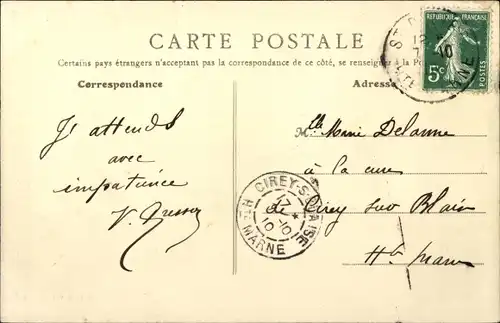 CARTE POSTALE
Certains pays étrangers n'acceptant pas la correspondance de ce côté, se renseigner à la Po
Correspondance
Adresse
RÉPUBLIQUE FRANÇAISE
5c
POSTES
J'attends
avec
impatience
V.
Mlle Marie Delanne
à la cure
de Cirey sur Blaise
Hte Marne
CIREY-S-BLAISE
17
10
10
HTE MARNE